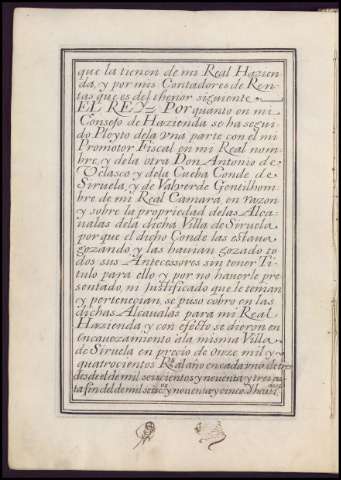 que la tienen de mi Real Hazien
da, y por mis Contadores de Ren
tas que es del thenor siguiente
EL REY. Por quanto en mi
Consejo de Hazienda se ha segui
do Pleyto dela vna parte con el mi
Promotor Fiscal en mi Real nom
bre, y dela otra Don Antonio de
Velasco y dela Cueba Conde de
Siruela, y de Valverde Gentilhom
bre de mi Real Camara en razon
y sobre la propriedad delas Alca
ualas dela dicha Villa de Siruela
por que el dicho Conde las estaua
gozando y las hauian gozado to
dos sus Antecessores sin tener Ti
tulo para ello y por no hauerle pre
sentado, ni justificado que le tenian
y pertenecian, se puso cobro en las
dichas Alcaualas para mi Real
Hazienda y con efecto se dieron en
Encauezamiento ala misma Villa
de Siruela en precio de onze mil y
quatrocientos Rs. al año en cada vno de tres
desde el de mil seiscientos y nouenta y tres
fin del de mil seisos. y nouenta y cinco